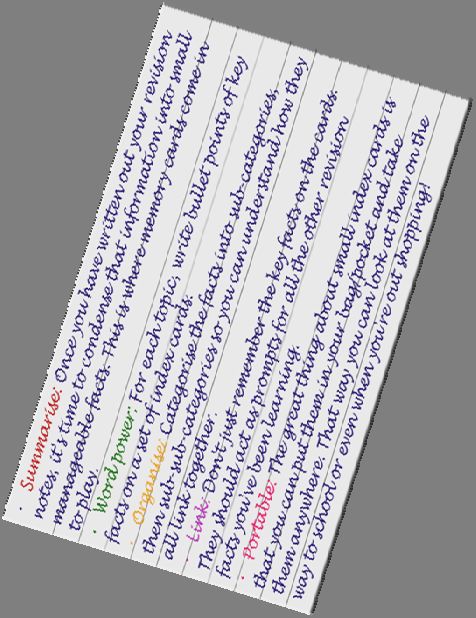 · Summarise: Once you have written out your revision
notes, it's time to condense that information into small
manageable facts. This is where memory cards come in
to play.
· Word power: For each topic, write bullet points of key
facts on a set of index cards.
· Organise: Categorise the facts into sub-categories,
then sub-sub-categories so you can understand how they
all link together.
· Link: Don't just remember the key facts on the cards.
They should act as prompts for all the other revision
facts you've been learning.
· Portable: The great thing about small index cards is
that you can put them in your bag/pocket and take
them anywhere. That way you can look at them on the
way to school or even when you're out shopping!